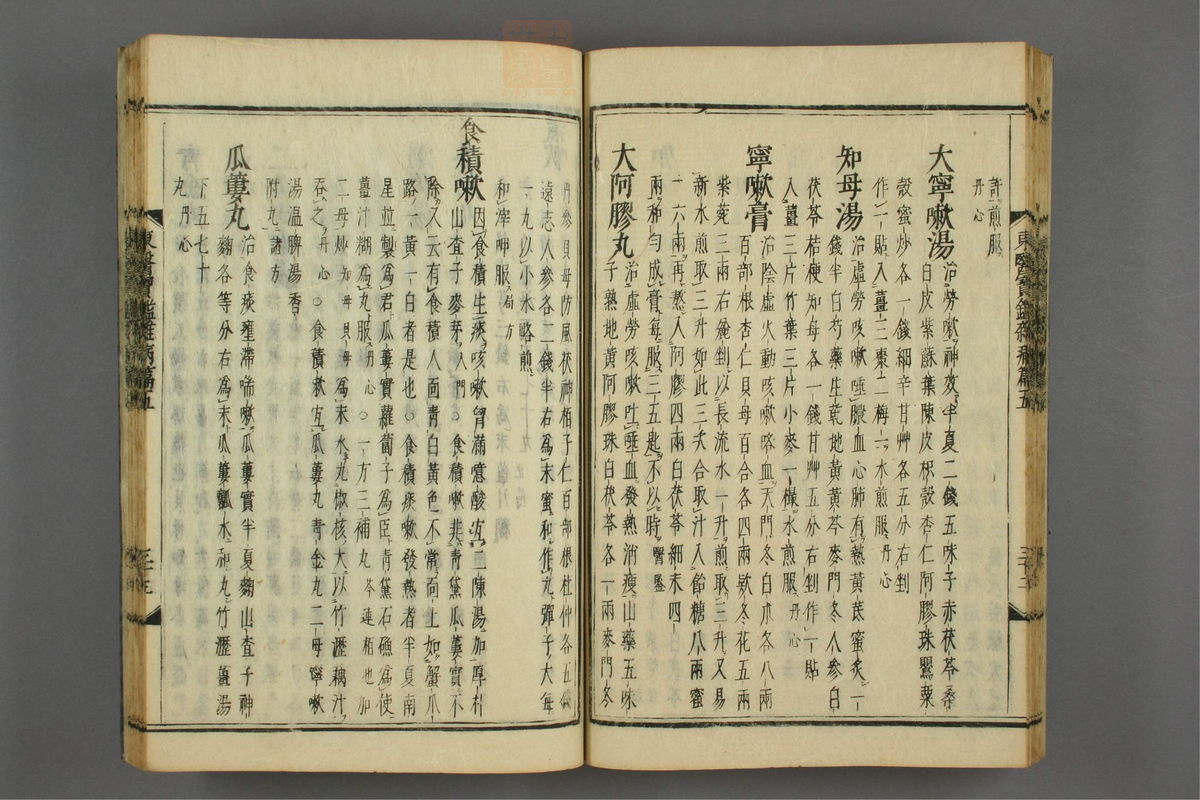 許煎服
丹心
大寧嗽湯 治勞嗽神效半夏二錢五味子赤茯苓桑
白皮紫蘇葉陳皮枳殼杏仁阿膠珠罌粟
殼蜜炒各一錢細辛甘艸各五分右剉
作一貼入薑三棗二梅一水煎服丹心
知母湯 治虛勞咳嗽唾膿血心肺有熱黃芪蜜炙一
錢半白芍藥生乾地黃黃芩麥門冬人參白
茯苓桔梗知母各一錢甘艸五分右剉作一貼
入薑三片竹葉三片小麥一撮水煎服丹心
寧嗽膏 治陰虛火動咳嗽咯血天門冬白朮各八兩
百部根杏仁貝母百合各四兩款冬花五兩
紫菀二兩右麄剉以長流水一升煎取三升又易
新水煎取三升如此三次合取汁入飴糖八兩蜜
十六兩再熬入阿膠四兩白茯苓細末四
兩和勻成膏每服三五匙不以時醫鑑
大阿膠丸 治虛勞咳嗽吐唾血發熱消瘦山藥五味
子熟地黃阿膠珠白茯苓各一兩麥門冬
丹參貝母防風茯神栢子仁百部根杜仲各五錢
遠志人參各二錢半右爲末蜜和作丸彈子大每
一丸以小水略煎
和滓呷服局方
食積嗽 因食積生痰咳嗽胷滿噫酸宜二陳湯加厚朴
山査子麥芽入門 ○食積嗽非靑黛瓜蔞實不
除又云有食積人面靑白黃色不常面上如蟹爪
路一黃一白者是也○食積痰嗽發熱者半夏南
星並製爲君瓜蔞實蘿葍子爲臣靑黛石礁爲使
薑汁糊爲丸服丹心○一方三補丸芩連栢也加
二母炒知母貝母爲末水丸椒核大以竹瀝藕汁
吞之丹心○食積嗽宜瓜蔞丸靑金丸二母寧嗽
湯溫脾湯香
附丸諸方
瓜蔞丸 治食痰壅滯喘嗽瓜蔞實半夏麴山査子神
麴各等分右爲末瓜蔞瓤水和丸竹瀝薑湯
下五七十
丸丹心